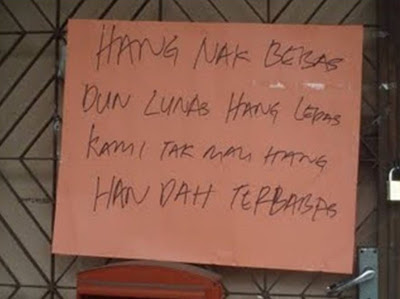 HANG NAK BEBAS
DUN LUNAS HANG LEPAS
KAMI TAK MAU HANG
HAN DAH TERBABAS